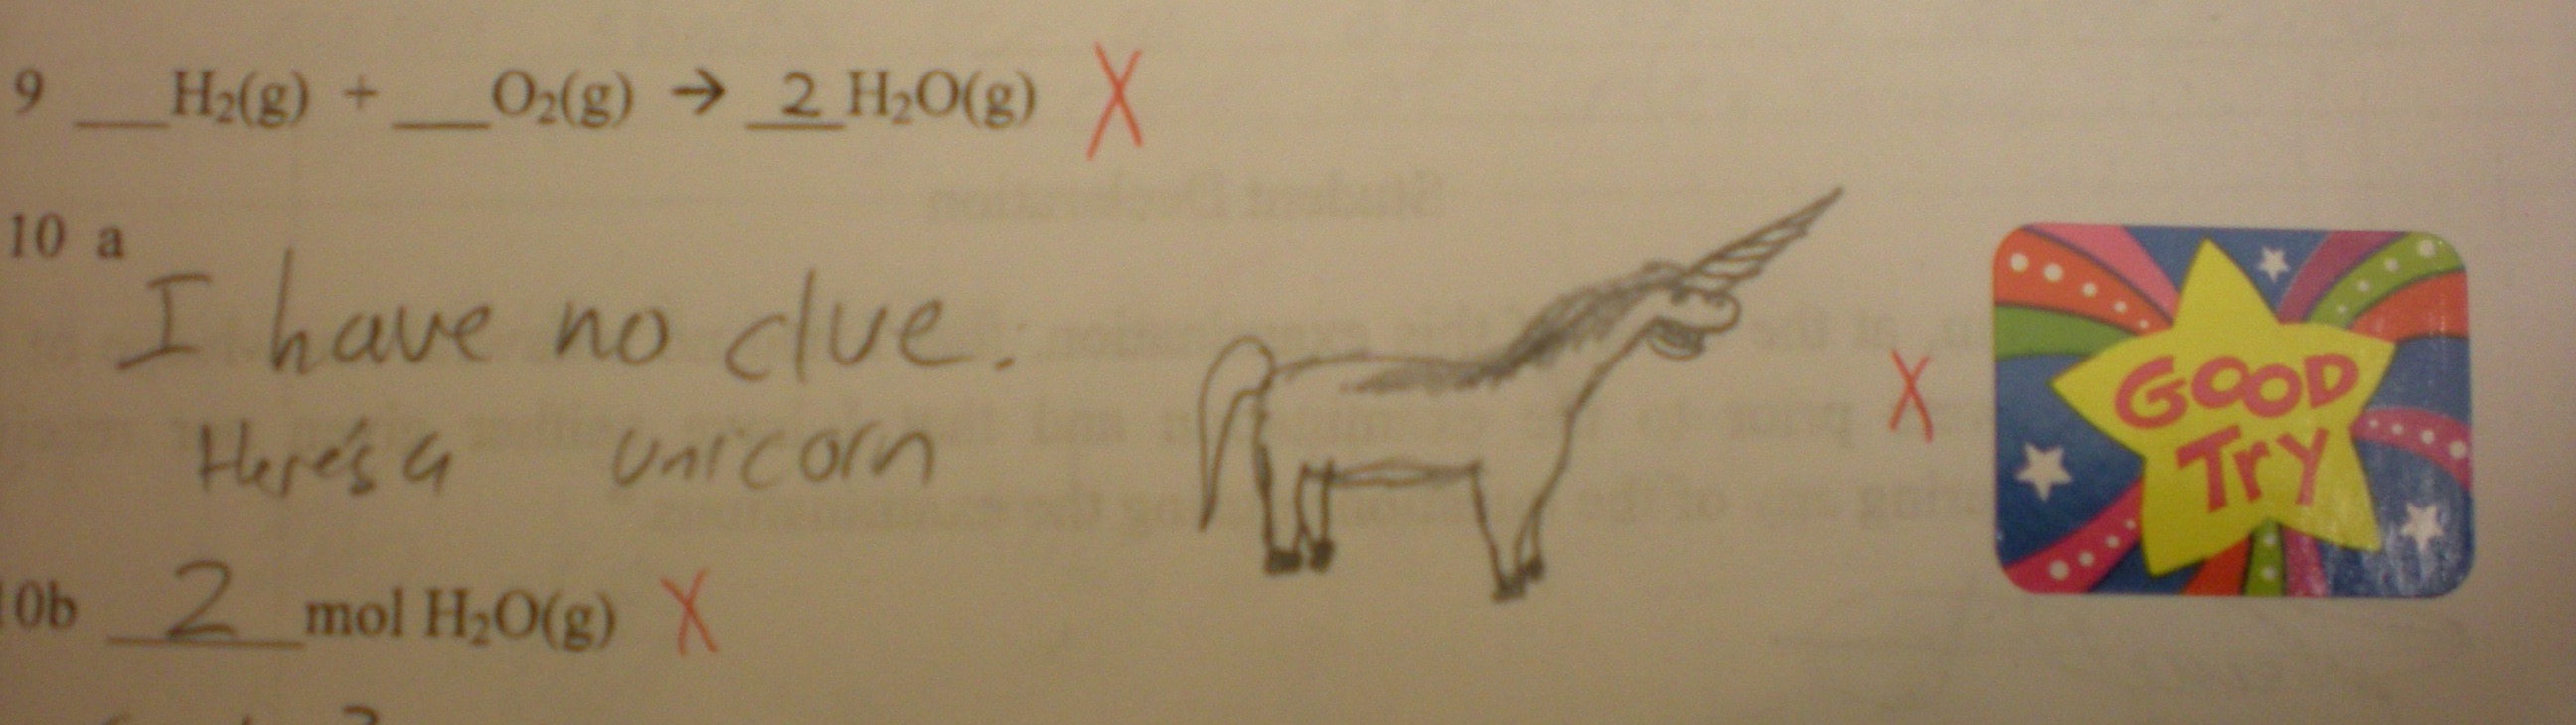 9 ___H₂(g) + ___O₂(g) → _2_H₂O(g) X
10 a
I have no clue.
Here's a unicorn
X
GOOD
Try
10b 2 mol H₂O(g) X